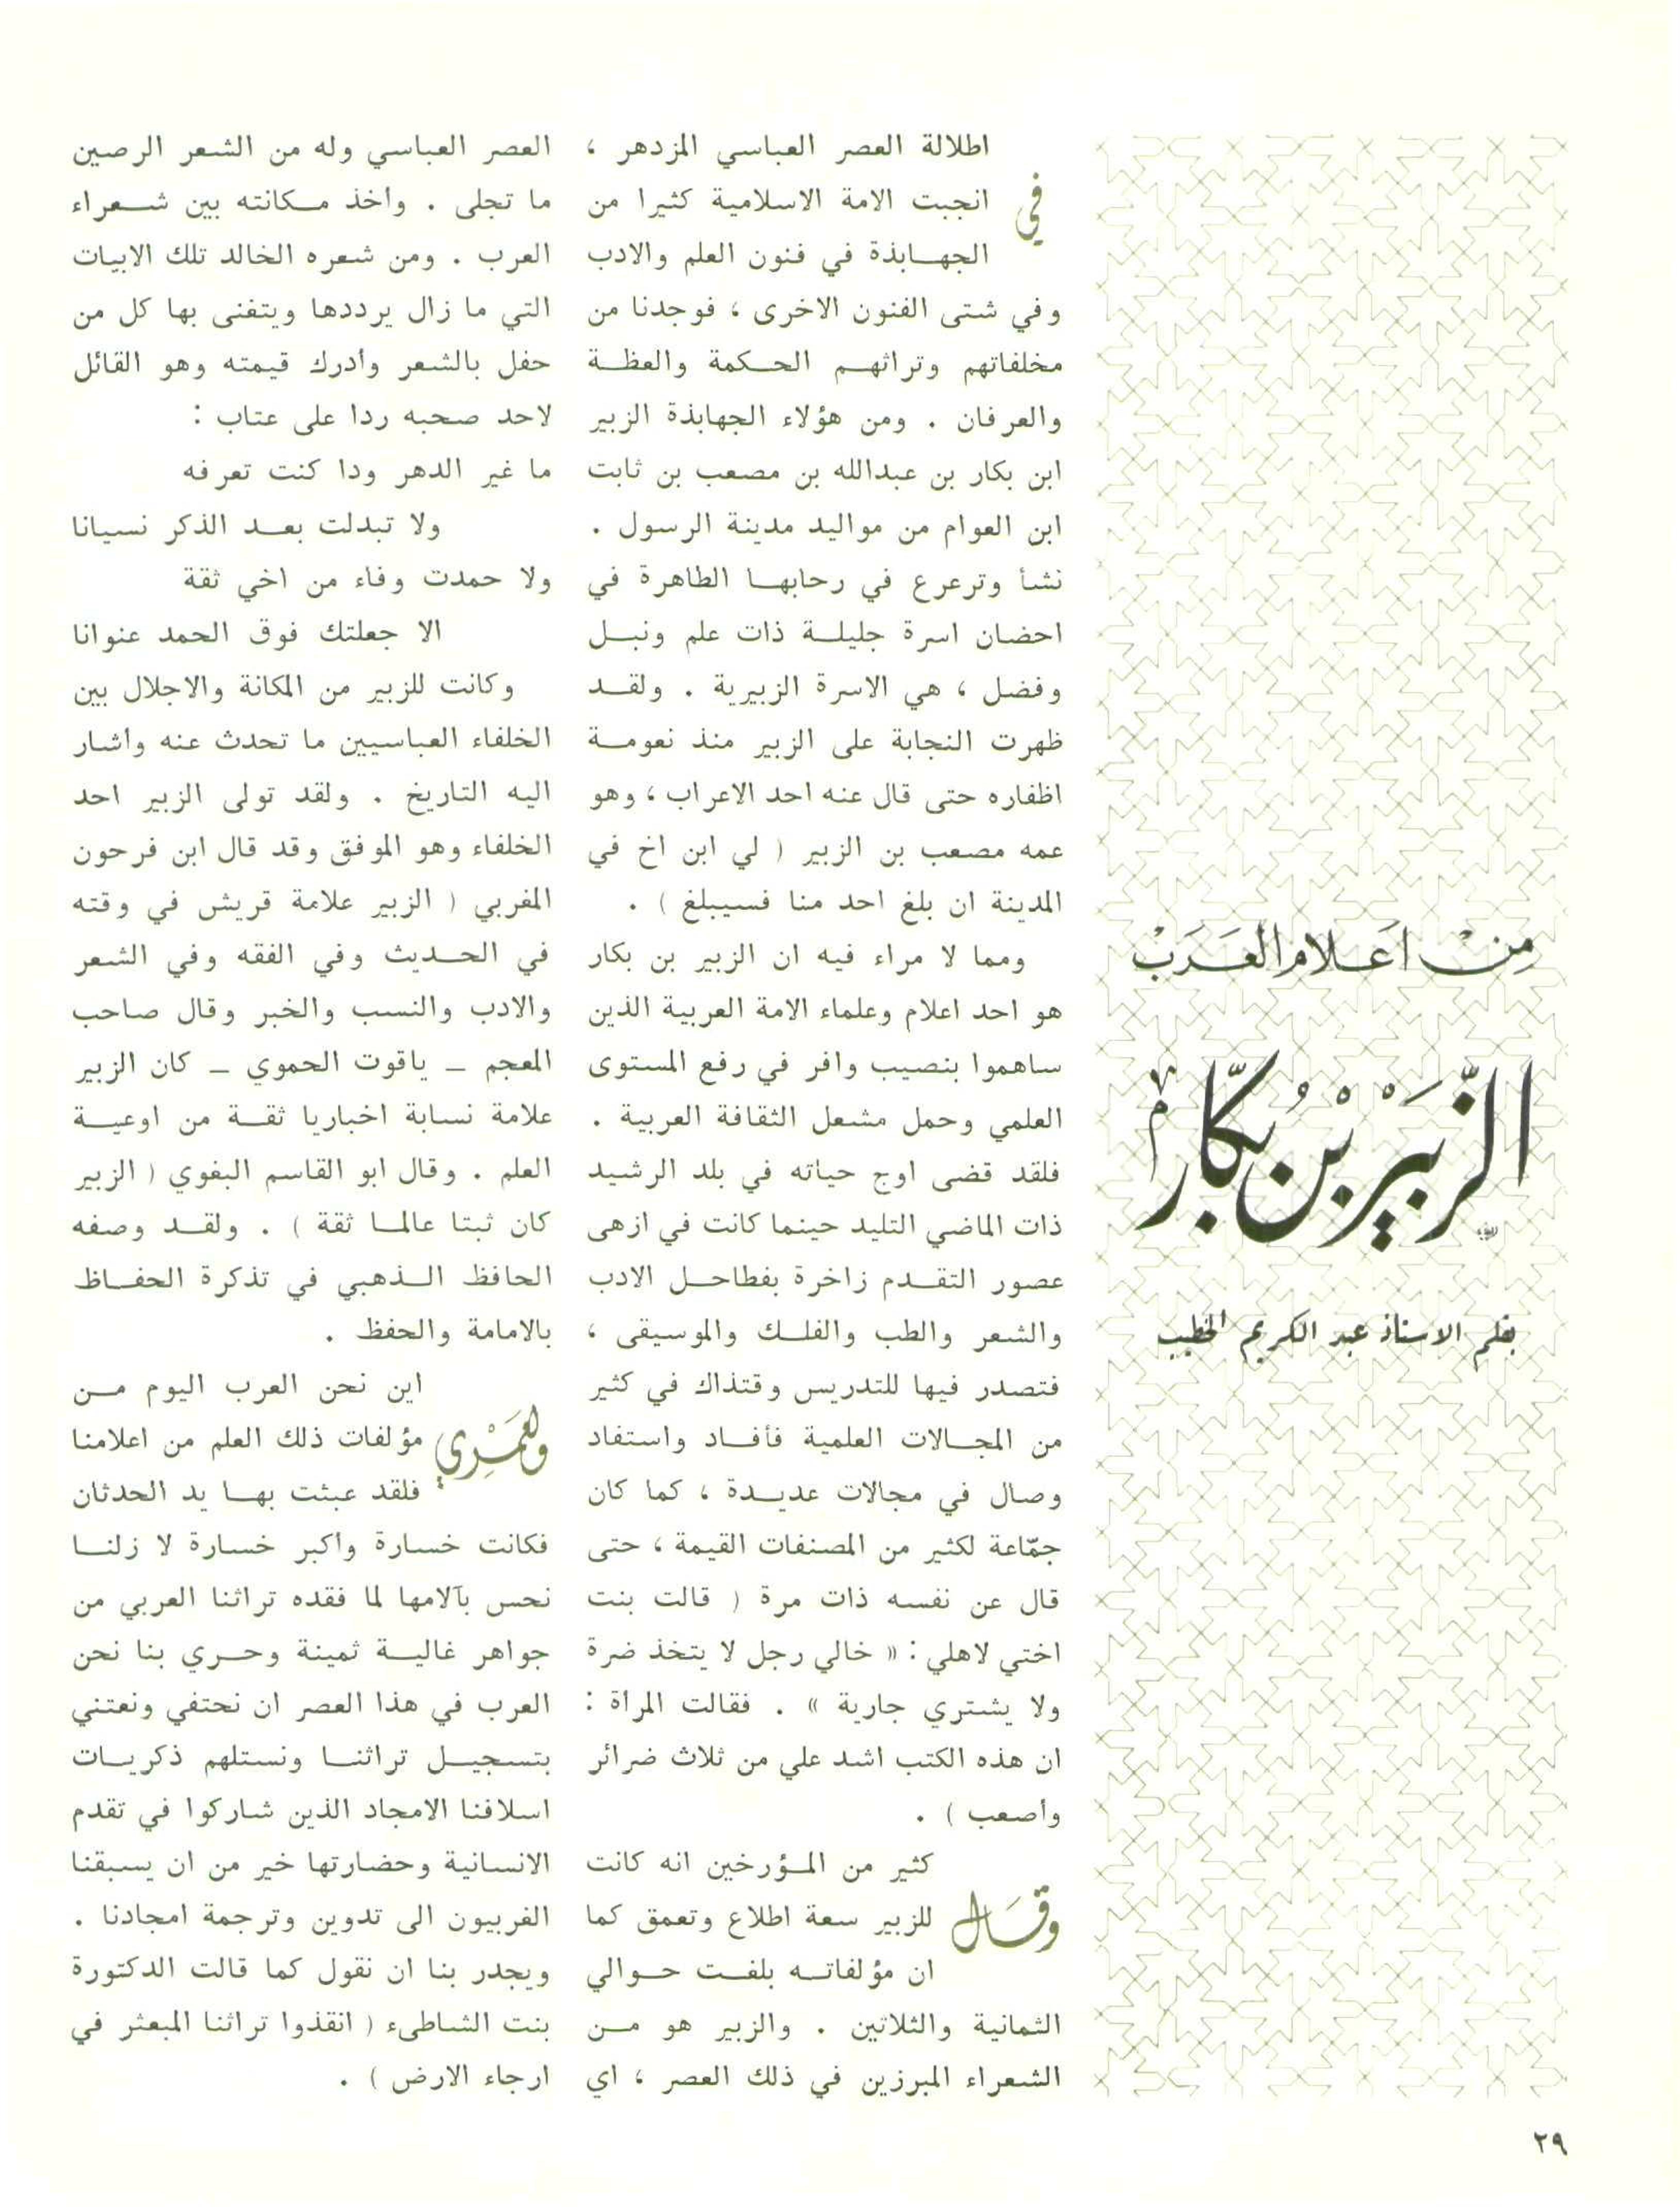 من أعلام العرب
الزبير بن بكار
بقلم الاستاذ عبد الكريم الخطيب
في
اطلالة العصر العباسي المزدهر ،
انجبت الامة الاسلامية كثيرا من
الجهابذة في فنون العلم والادب
وفي شتى الفنون الاخرى ، فوجدنا من
مخلفاتهم وتراثهم الحكمة والعظة
والعرفان . ومن هؤلاء الجهابذة الزبير
ابن بكار بن عبدالله بن مصعب بن ثابت
ابن العوام من مواليد مدينة الرسول .
نشأ وترعرع في رحابها الطاهرة في
احضان اسرة جليلة ذات علم ونبل
وفضل ، هي الاسرة الزبيرية . ولقد
ظهرت النجابة على الزبير منذ نعومة
اظفاره حتى قال عنه احد الاعراب ، وهو
عمه مصعب بن الزبير ( لي ابن اخ في
المدينة ان بلغ احد منا فسيبلغ ) .
ومما لا مراء فيه ان الزبير بن بكار
هو احد اعلام وعلماء الامة العربية الذين
ساهموا بنصيب وافر في رفع المستوى
العلمي وحمل مشعل الثقافة العربية .
فلقد قضى اوج حياته في بلد الرشيد
ذات الماضي التليد حينما كانت في ازهى
عصور التقدم زاخرة بفطاحل الادب
والشعر والطب والفلك والموسيقى ،
فتصدر فيها للتدريس وقتذاك في كثير
من المجالات العلمية فأفاد واستفاد
وصال في مجالات عديدة ، كما كان
جمّاعة لكثير من المصنفات القيمة ، حتى
قال عن نفسه ذات مرة ( قالت بنت
اختي لاهلي : « خالي رجل لا يتخذ ضرة
ولا يشتري جارية » . فقالت المرأة :
ان هذه الكتب اشد علي من ثلاث ضرائر
وأصعب ) .
وقال
كثير من المؤرخين انه كانت
للزبير سعة اطلاع وتعمق كما
ان مؤلفاته بلغت حوالي
الثمانية والثلاثين . والزبير هو من
الشعراء المبرزين في ذلك العصر ، اي
العصر العباسي وله من الشعر الرصين
ما تجلى . وأخذ مكانته بين شعراء
العرب . ومن شعره الخالد تلك الابيات
التي ما زال يرددها ويتغنى بها كل من
حفل بالشعر وأدرك قيمته وهو القائل
لاحد صحبه ردا على عتاب :
ما غير الدهر ودا كنت تعرفه
ولا تبدلت بعد الذكر نسيانا
ولا حمدت وفاء من اخي ثقة
الا جعلتك فوق الحمد عنوانا
وكانت للزبير من المكانة والاجلال بين
الخلفاء العباسيين ما تحدث عنه وأشار
اليه التاريخ . ولقد تولى الزبير احد
الخلفاء وهو الموفق وقد قال ابن فرحون
المغربي ( الزبير علامة قريش في وقته
في الحديث وفي الفقه وفي الشعر
والادب والنسب والخبر وقال صاحب
المعجم – ياقوت الحموي – كان الزبير
علامة نسابة اخباريا ثقة من اوعية
العلم . وقال ابو القاسم البغوي ( الزبير
كان ثبتا عالما ثقة ) . ولقد وصفه
الحافظ الذهبي في تذكرة الحفاظ
بالامامة والحفظ .
ولعمري
اين نحن العرب اليوم من
مؤلفات ذلك العلم من اعلامنا
فلقد عبثت بها يد الحدثان
فكانت خسارة وأكبر خسارة لا زلنا
نحس بآلامها لما فقده تراثنا العربي من
جواهر غالية ثمينة وحري بنا نحن
العرب في هذا العصر ان نحتفي ونعتني
بتسجيل تراثنا ونستلهم ذكريات
اسلافنا الامجاد الذين شاركوا في تقدم
الانسانية وحضارتها خير من ان يسبقنا
الغربيون الى تدوين وترجمة امجادنا .
ويجدر بنا ان نقول كما قالت الدكتورة
بنت الشاطىء ( انقذوا تراثنا المبعثر في
ارجاء الارض ) .
٢٩